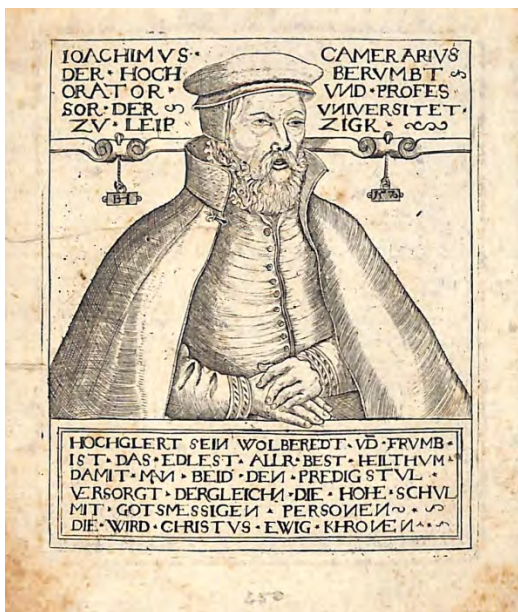 IOACHIMVS · CAMERARIVS
DER · HOCH BERVMBT
ORATOR · VND · PROFES
SOR · DER VNIVERSITET ·
ZV · LEIP ZIGK ·
HOCHGLERT SEIN WOLBEREDT · VD̄ · FRVMB ·
IST · DAS · EDLEST · ALLR · BEST · HEILTHVM ·
DAMIT · MVN · BEID · DEN · PREDIGSTVL ·
VERSORGT · DERGLEICHN · DIE · HOHE · SCHVL
MIT · GOTSMESSIGEN · PERSONEN
DIE · WIRD · CHRISTVS · EWIG · KHRONEN